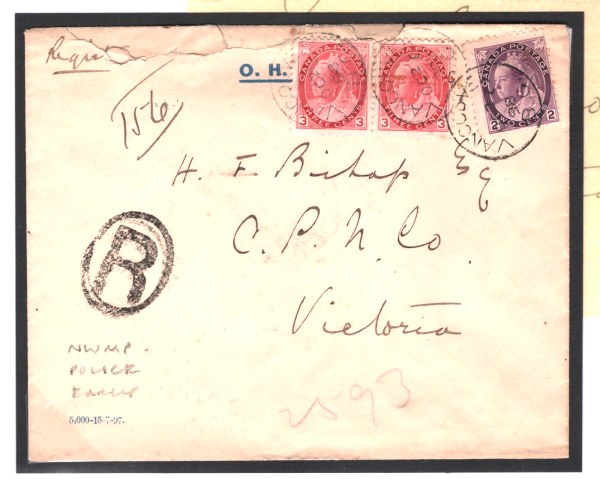 Regis
O. H.
CANADA POSTAGE
3 THREE CENTS 3
CANADA POSTAGE
3 THREE CENTS 3
CANADA POSTAGE
2 TWO CENTS 2
VANCO
156
H. F. Bishop Esq
C. P. N. Co.
Victoria
R
NWMP -
POLICE
EARLY
5,000-15-7-97.
2593